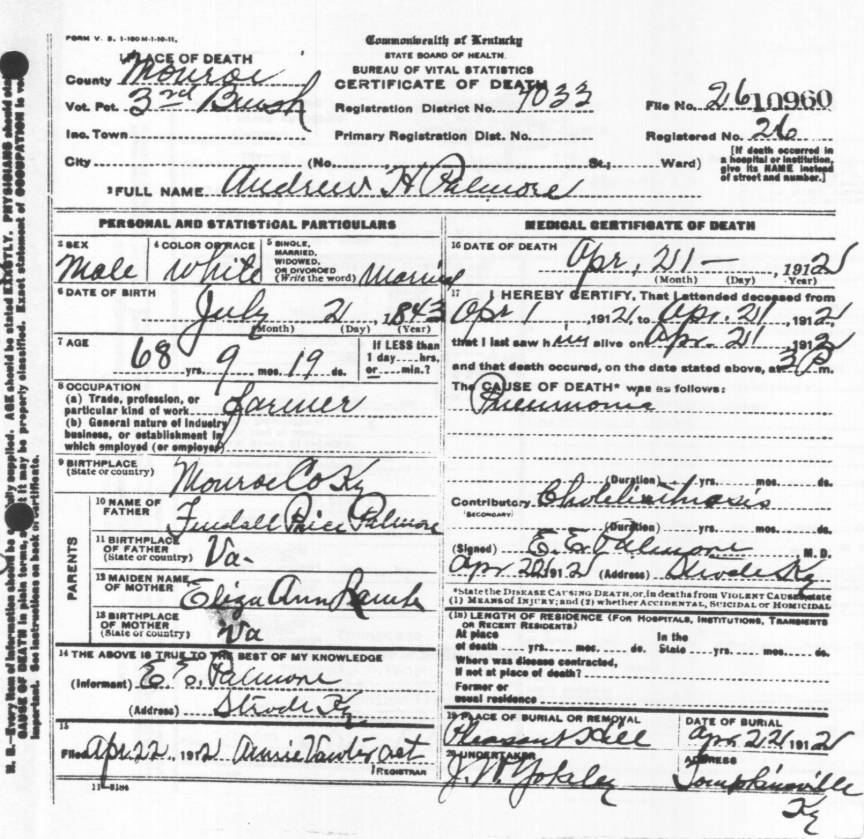 FORM V. S. 1-100 M-1-10-11.
Commonwealth of Kentucky
STATE BOARD OF HEALTH
BUREAU OF VITAL STATISTICS
CERTIFICATE OF DEATH
1 PLACE OF DEATH
County Monroe
Vot. Pct. 3rd Bush
Inc. Town
City (No. St.; Ward)
Registration District No. 7033
Primary Registration Dist. No.
File No. 26 10960
Registered No. 26
[If death occurred in
a hospital or institution,
give its NAME instead
of street and number.]
2 FULL NAME Andrew H Palmore
PERSONAL AND STATISTICAL PARTICULARS
3 SEX
Male
4 COLOR OR RACE
White
5 SINGLE,
MARRIED,
WIDOWED,
OR DIVORCED
(Write the word) Married
6 DATE OF BIRTH
July 2, 1843
(Month) (Day) (Year)
7 AGE
68 yrs. 9 mos. 19 ds.
If LESS than
1 day hrs.
or min.?
8 OCCUPATION
(a) Trade, profession, or
particular kind of work Farmer
(b) General nature of industry
business, or establishment in
which employed (or employer)
9 BIRTHPLACE
(State or country) Monroe Co Ky
PARENTS
10 NAME OF
FATHER Price Palmore
11 BIRTHPLACE
OF FATHER
(State or country) Va-
12 MAIDEN NAME
OF MOTHER Eliza Ann
13 BIRTHPLACE
OF MOTHER
(State or country) Va
14 THE ABOVE IS TRUE TO THE BEST OF MY KNOWLEDGE
(Informant) E. E. Palmore
(Address) Strode Ky
15
Filed Apr. 22, 1912 Annie Vawter act
REGISTRAR
11-3184
MEDICAL CERTIFICATE OF DEATH
16 DATE OF DEATH
Apr, 21 - 1912
(Month) (Day) (Year)
17 I HEREBY CERTIFY, That I attended deceased from
Apr 1 1912 to Apr. 21, 1912,
that I last saw him alive on Apr. 21, 1912
and that death occured, on the date stated above, at 3 P m.
The CAUSE OF DEATH* was as follows:
Pneumonia
(Duration) yrs. mos. ds.
Contributory Cholelithiasis
(SECONDARY)
(Duration) yrs. mos. ds.
(Signed) E. E. Palmore M. D.
Apr 22 1912 (Address) Strode Ky
*State the DISEASE CAUSING DEATH, or, in deaths from VIOLENT CAUSES, state
(1) MEANS OF INJURY; and (2) whether ACCIDENTAL, SUICIDAL or HOMICIDAL
(18) LENGTH OF RESIDENCE (FOR HOSPITALS, INSTITUTIONS, TRANSIENTS
OR RECENT RESIDENTS)
At place
of death yrs. mos. ds.
In the
State yrs. mos. ds.
Where was disease contracted,
If not at place of death?
Former or
usual residence
19 PLACE OF BURIAL OR REMOVAL
Pleasant Hill
DATE OF BURIAL
Apr 22 1912
20 UNDERTAKER
J. W. Yokley
ADDRESS
Tompkinsville
Ky
N. B.—Every item of information should be supplied. AGE should be stated EXACTLY. PHYSICIANS should state
CAUSE OF DEATH in plain terms, it may be properly classified. Exact statement of OCCUPATION is
important. See instructions on back of certificate.